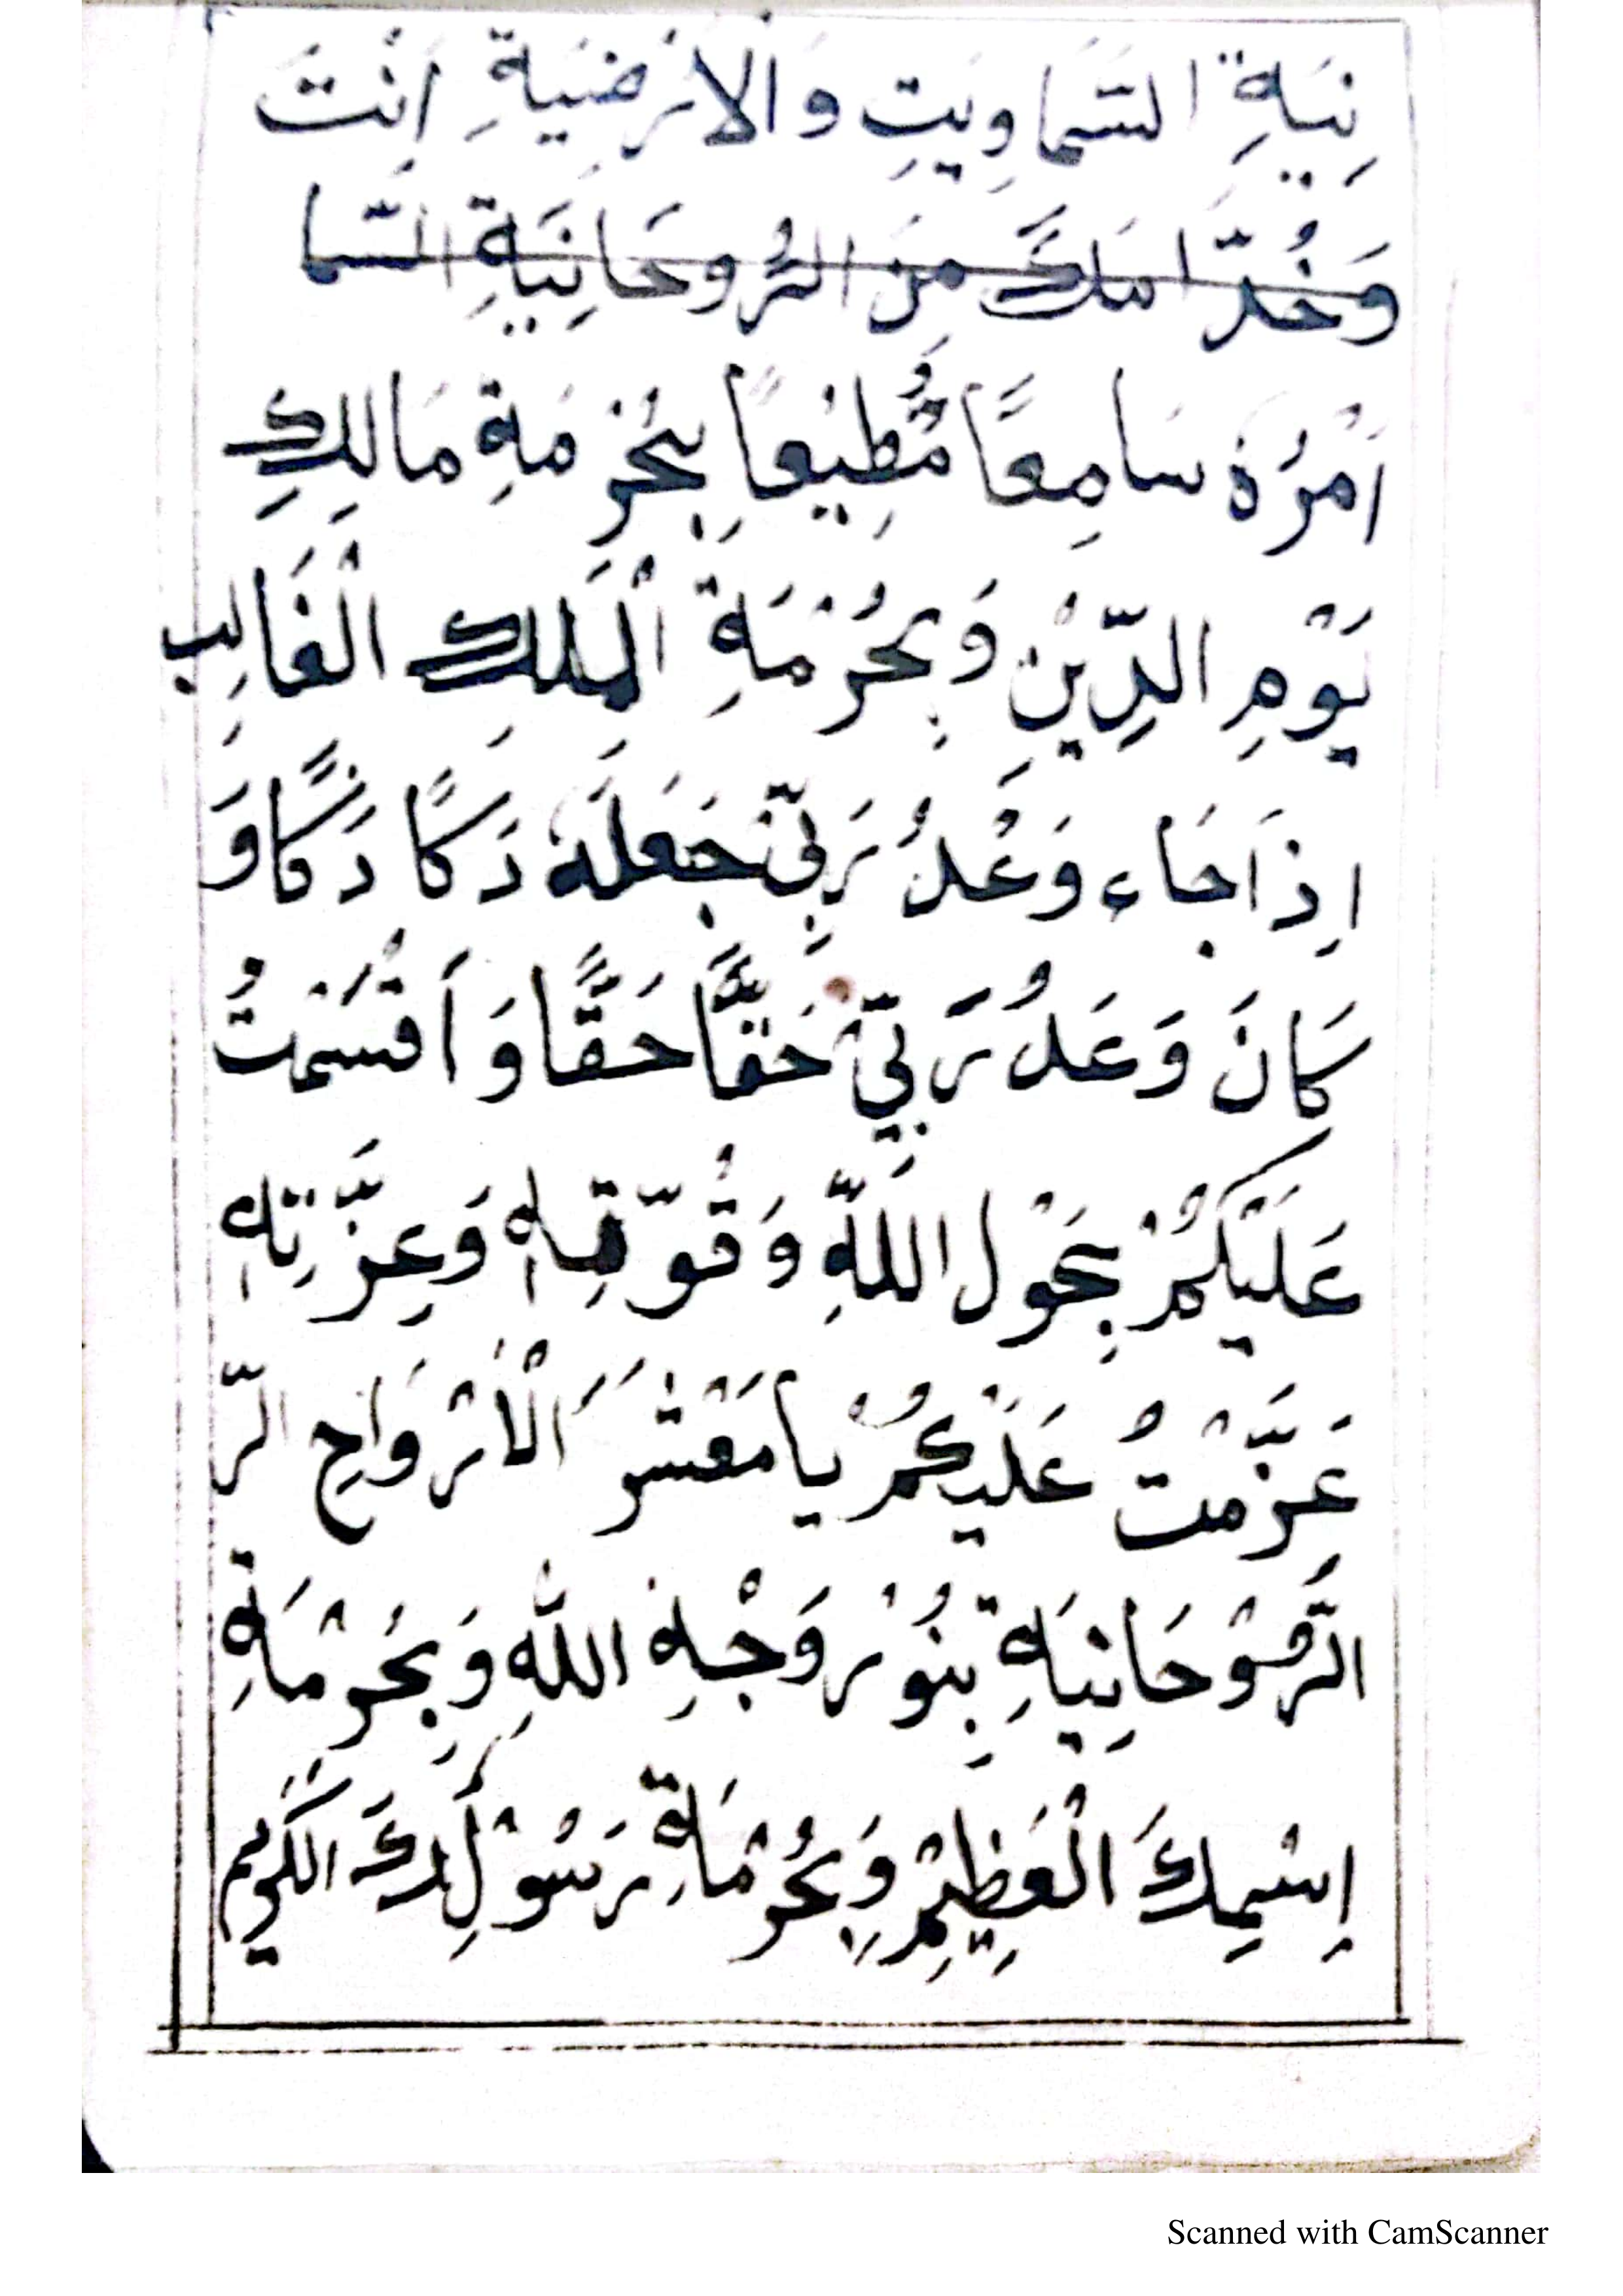 نِيَةِ السَّمَاوِيَتِ وَالْأَرْضِيَةِ اَنْتَ
وَخُدَّامُكَ مِنَ الرُّوحَانِيَةِ السَّمَا
اَمْرُهٗ سَامِعًا مُّطِيْعًا بِحُرْمَةِ مَالِكِ
يَوْمِ الدِّيْنِ وَبِحُرْمَةِ الْمَلِكِ الْغَالِبِ
اِذَا جَاءَ وَعْدُ رَبِّيْ جَعَلَهٗ دَكًّا دَكًّا وَ
كَانَ وَعَدُ رَبِّيْ حَقًّا حَقًّا وَ اَقْسَمْتُ
عَلَيْكُمْ بِحَوْلِ اللّٰهِ وَ قُوَّتِهٖ وَعِزَّتِهٖ
عَزَّمْتُ عَلَيْكُمْ يَا مَعْشَرَ الْاَرْوَاحِ الرّ
الرُّوْحَانِيَةِ بِنُوْرِ وَجْهِ اللّٰهِ وَبِحُرْمَةِ
إِسْمِكَ الْعَظِيْمِ وَبِحُرْمَةِ رَسُوْلِكَ الْكَرِيْم
Scanned with CamScanner